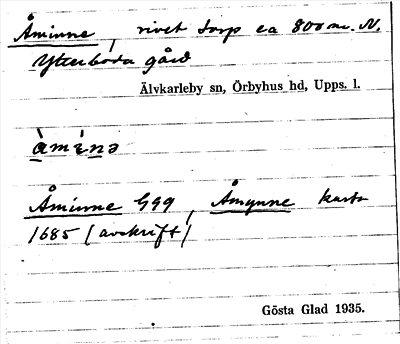 Åminne, rivet torp ca 800 m. N.
Ytterboda gård
Älvkarleby sn, Örbyhus hd, Upps. l.
àmɛ́nə
Åminne GGG, Åmynne karta
1685 (avskrift)
Gösta Glad 1935.